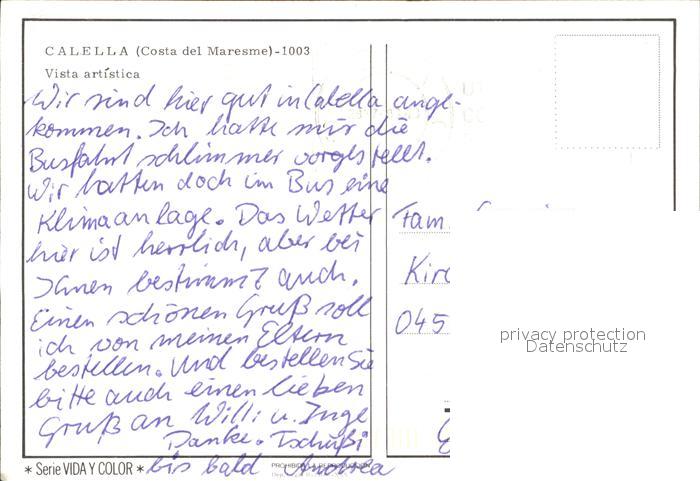 CALELLA (Costa del Maresme)-1003
Vista artística
Wir sind hier gut in Calella ange-
kommen. Ich hatte mir die
Busfahrt schlimmer vorgestellt.
Wir hatten doch im Bus eine
Klimaanlage. Das Wetter
hier ist herrlich, aber bei
Ihnen bestimmt auch.
Einen schönen Gruß soll
ich von meinen Eltern
bestellen. Und bestellen Sie
bitte auch einen lieben
Gruß an Willi u. Inge
Danke. Tschüßi
bis bald Andrea
Fam.
Kirc
045
privacy protection
Datenschutz
* Serie VIDA Y COLOR *